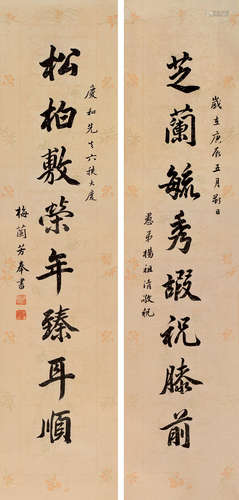 歲在庚辰五月穀旦
芝蘭毓秀嘏祝膝前
愚弟楊祖清敬祝
慶和先生六秩大慶
松柏敷榮年臻耳順
梅蘭芳奉書